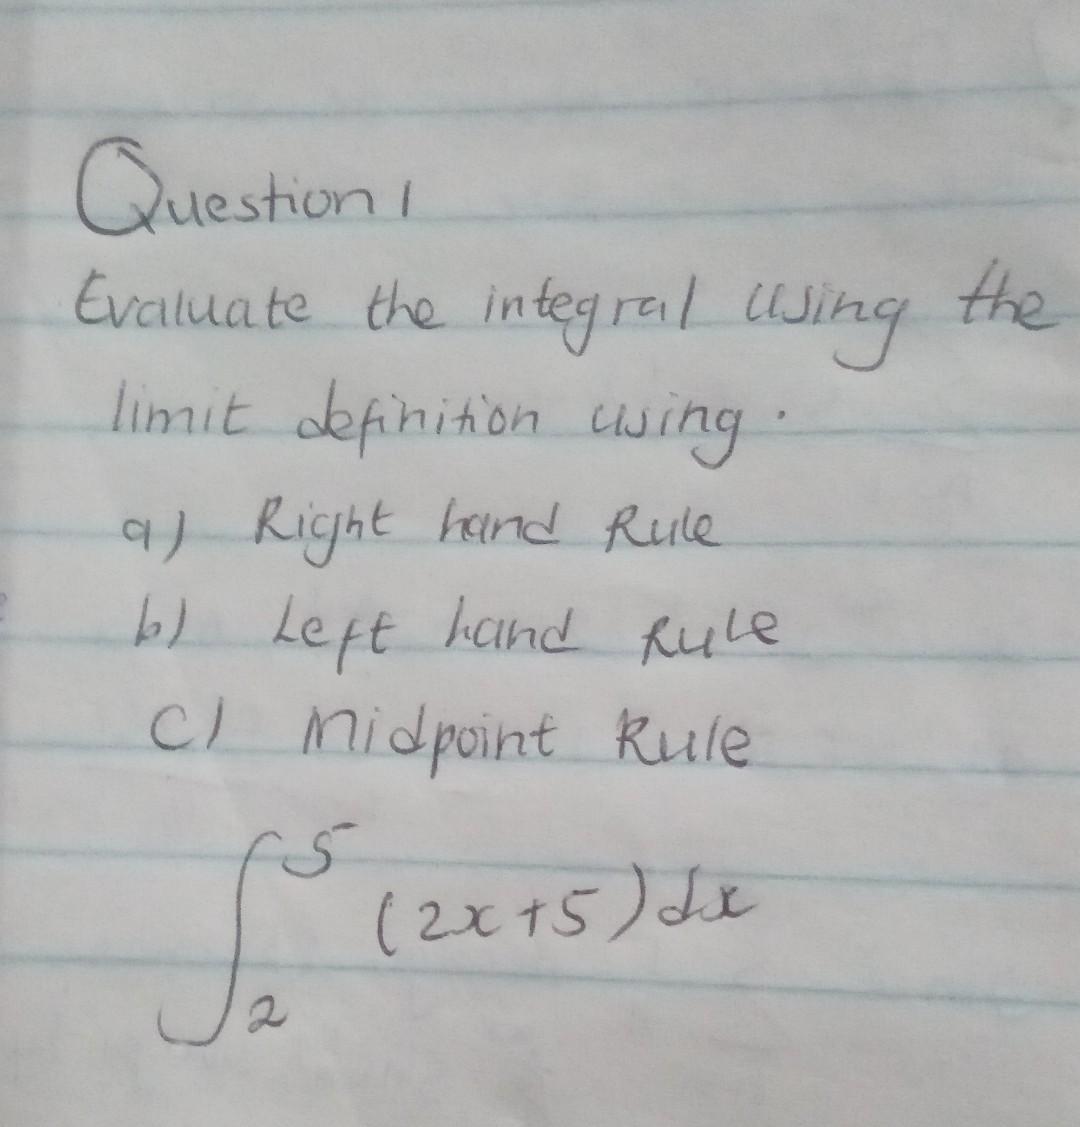 Question 1
Evaluate the integral using the
limit definition using.
a) Right hand Rule
b) Left hand Rule
c) Midpoint Rule
∫₂⁵ (2x+5)dx